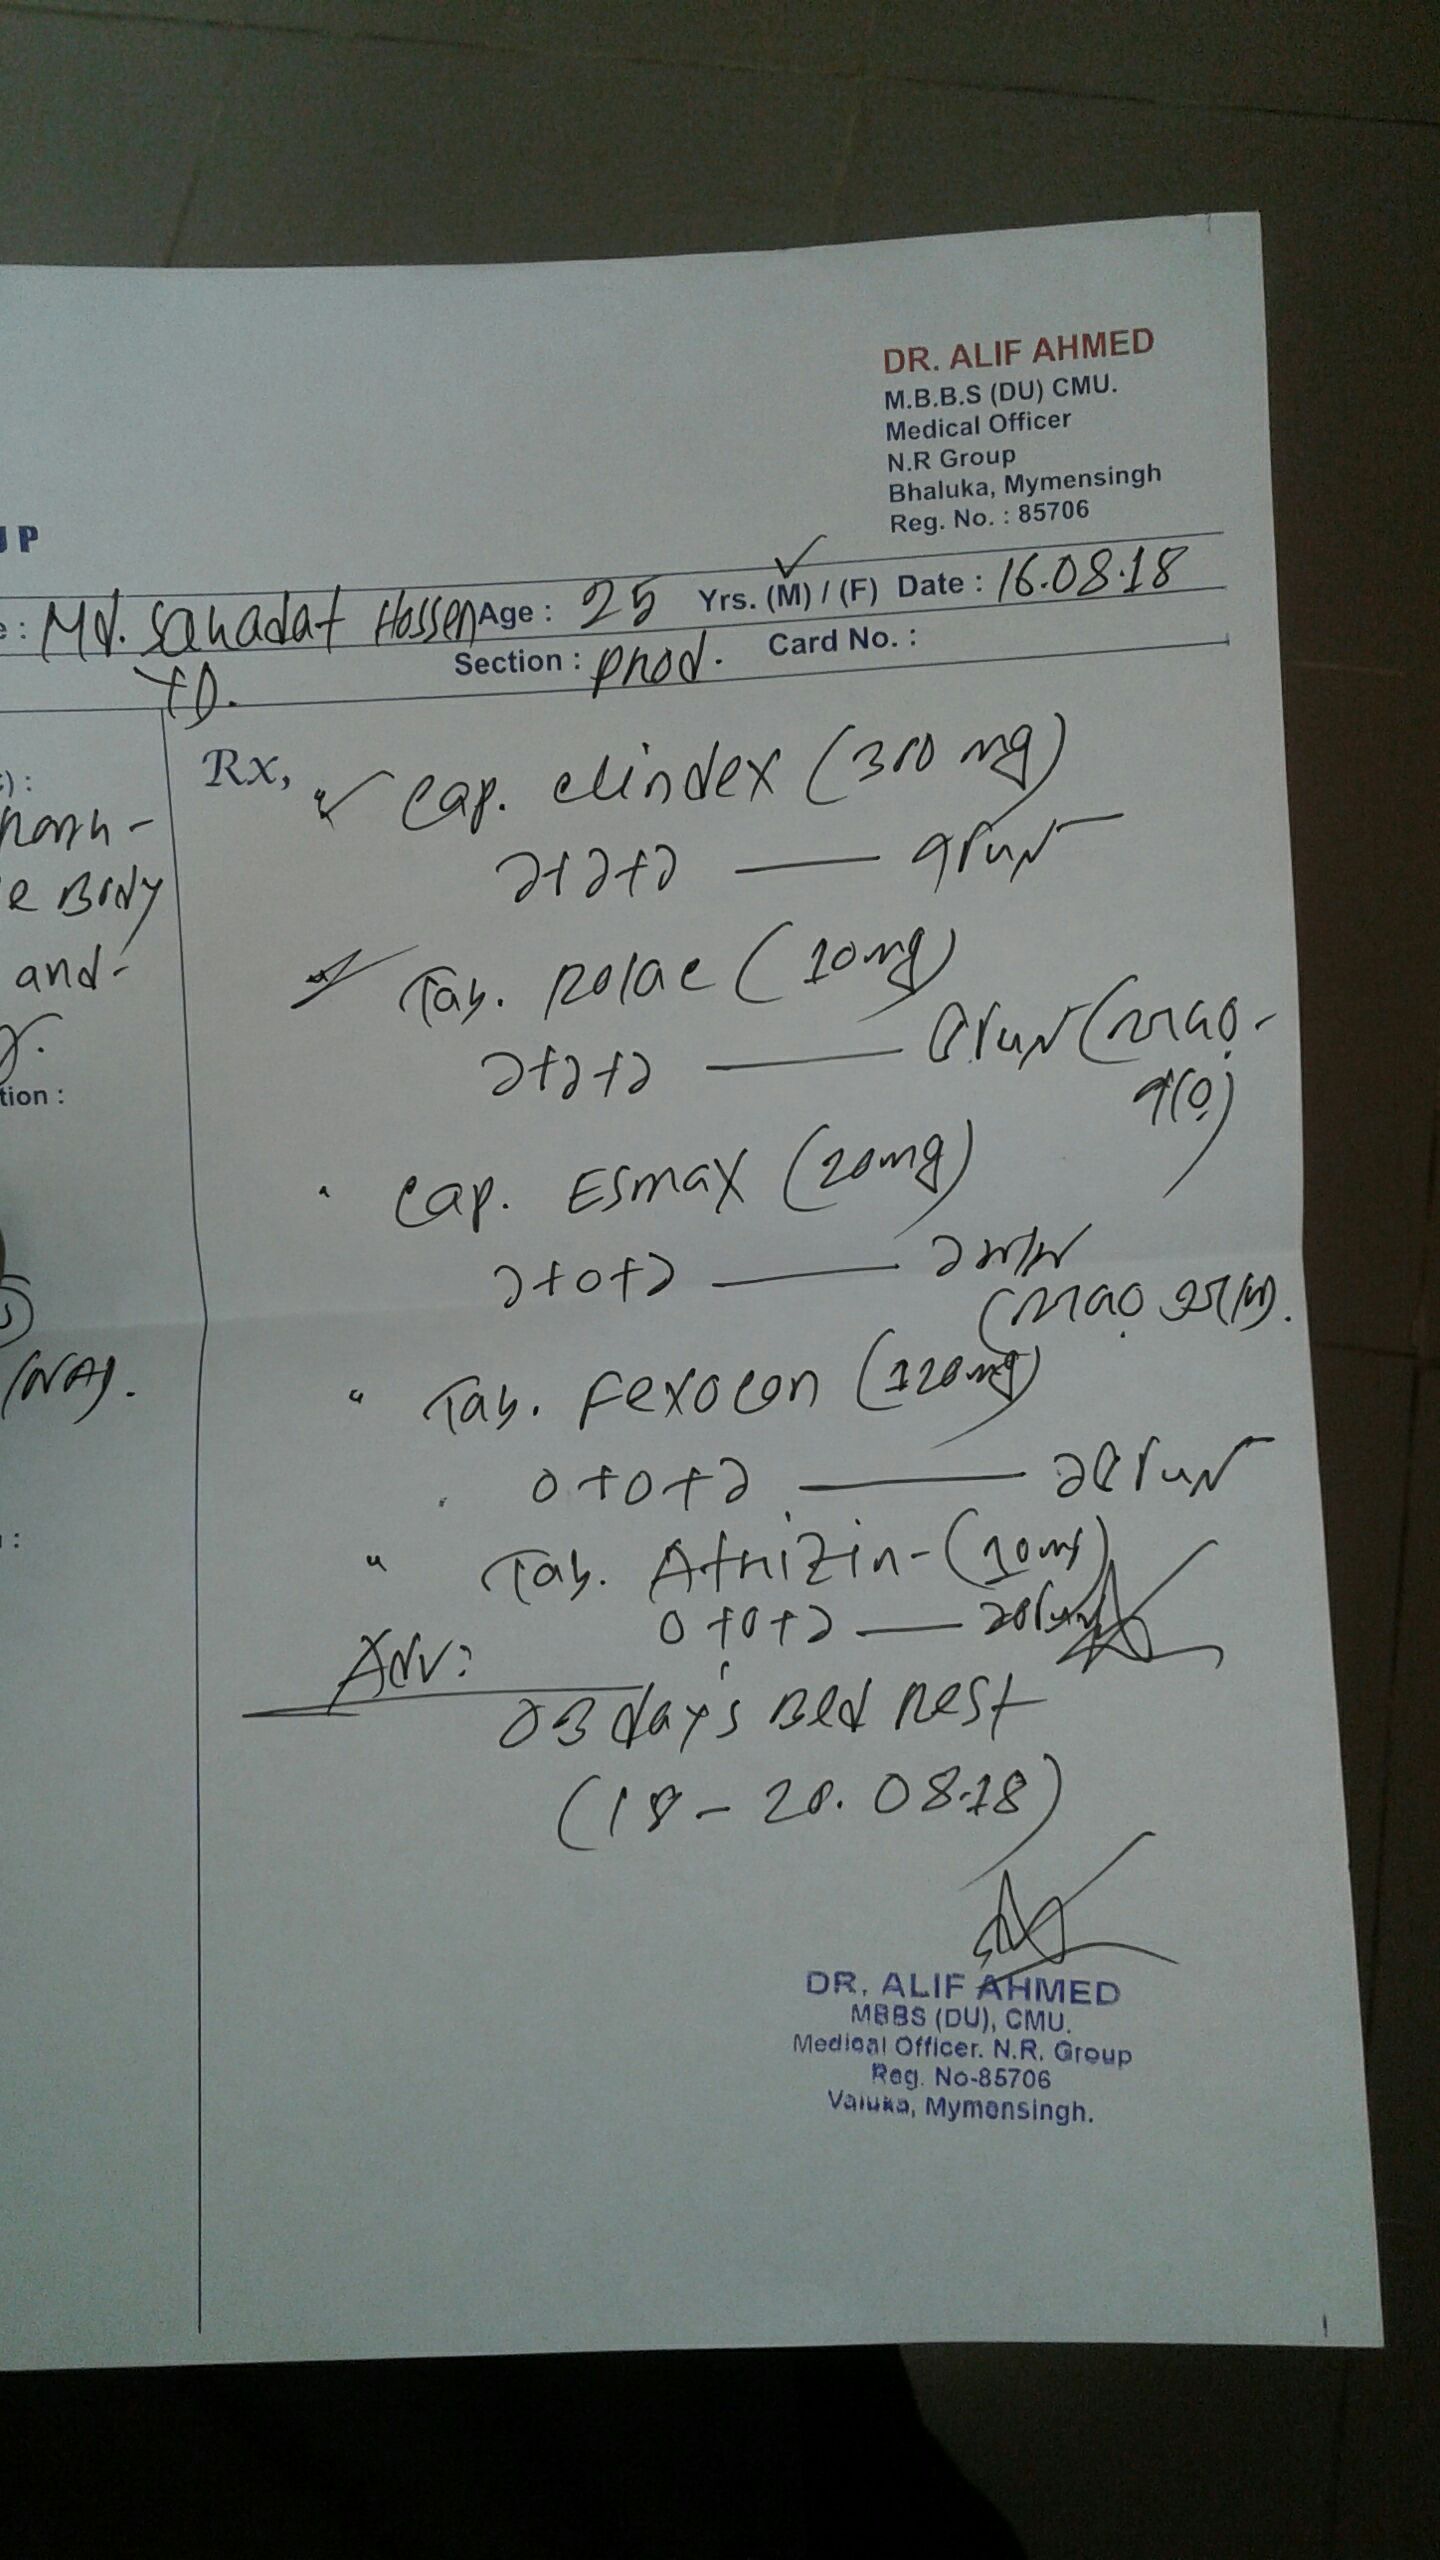 DR. ALIF AHMED
M.B.B.S (DU) CMU.
Medical Officer
N.R Group
Bhaluka, Mymensingh
Reg. No. : 85706
UP
e : Md. Sahadat Hossen Age : 25 Yrs. (M) / (F) Date : 16.08.18
YD. Section : prod. Card No. :
Rx,
Cap. clindex (300 mg)
১+১+১ — ৭দিন
Tab. Rolac (10mg)
১+১+১ — ৫দিন (খাওয়ার পর)
Cap. Esmax (20mg)
১+০+১ — ১ মাস
(খাওয়ার আগে).
Tab. Fexocon (120mg)
০+০+১ — ১৫দিন
Tab. Atrizin - (10mg)
০+০+১ — ১৫দিন
Adv:
03 days Bed Rest
(18 - 20.08.18)
e Body
and
tion :
(NAD).
DR. ALIF AHMED
MBBS (DU), CMU.
Medical Officer. N.R. Group
Reg. No-85706
Valuka, Mymensingh.